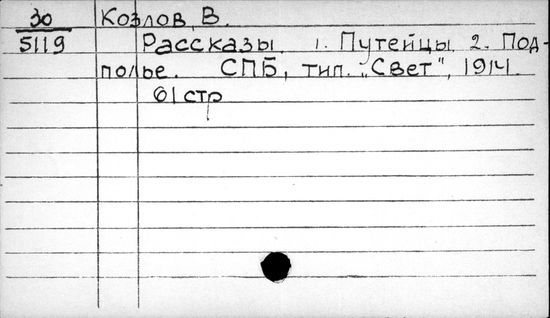 30 Козлов, В.
5119 Рассказы. 1. Путейцы 2. Под-
полье. СПБ, тип. „Свет", 1914.
61 стр